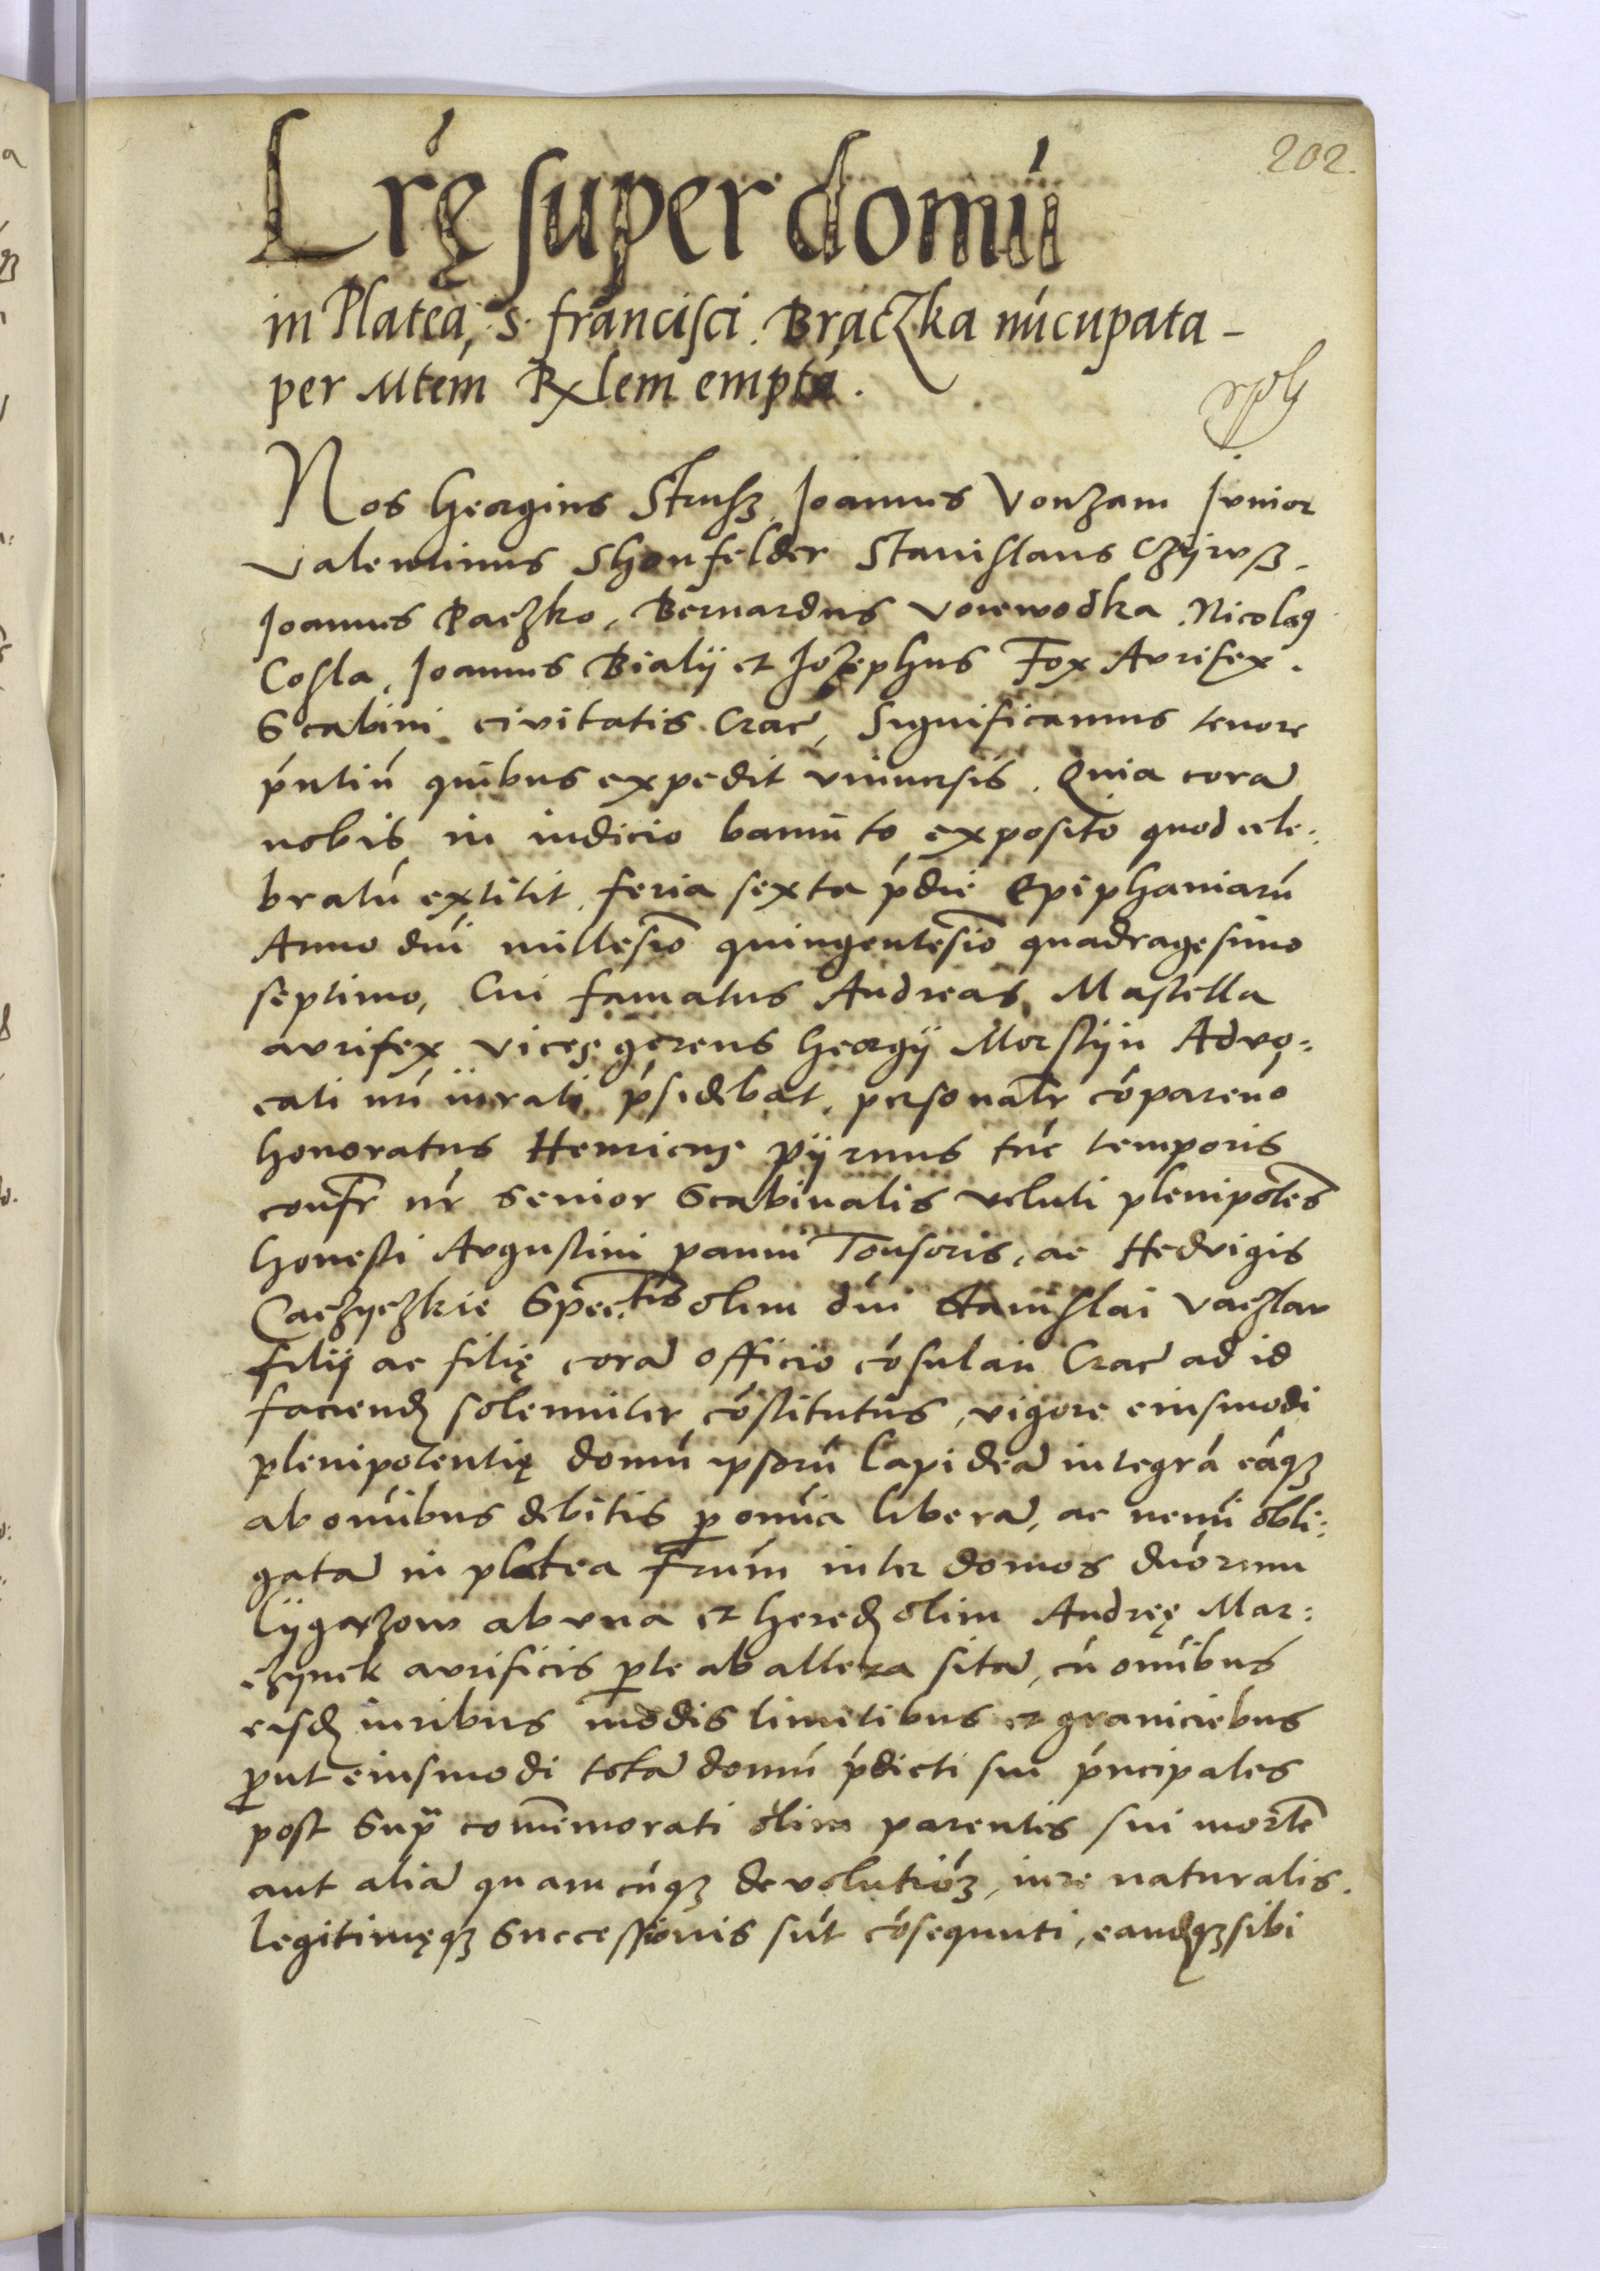 202.
Lrę super domū
in Platea, S. francisci. Brączka nūcupata -
per Mtem Rxlem empta.
Nos Georgius Strusz, Joannes Vonzam Junior
Valentinus Shonfelder Stanislaus Czÿrusz.
Joannes Paczko, Bernardus Voiewodka, Nicolaꝰ
Cosla, Joannes Bialÿ et Jozephus Fox Aurifex.
Scabini civitatis Crac̄, Significamus tenore
pn̄tiū quibus expedit vniuersis. Quia corā
nobis in iudicio bannito exposito quod cele:
bratū extitit feria sexta p̄die Epiphaniarū
Anno dn̄i millesīo quingentesīo quadragesimo
septimo, Cui famatus Andreas Mastella
aurifex vices gerens Georgÿ Morstÿn Advo:
cati nr̄i iurati p̄sidebat, personalr̄ cōparens
honoratus Henricus Pÿrnus tūc temporis
confr̄ nr̄ senior Scabinalis veluti plenipotēs
honesti Augustini pannitonsoris, ac Hedvigis
Caczyczkie Spectis olim dn̄i Stanislai Vaczlav
filÿ ac filię corā officio cōsulari Crac̄ ad id
faciendꝫ solemniter cōstitutus, vigore eiusmodi
plenipotentię domū ipsorū lapideā integrā eāqꝫ
ab omībus debitis ꝑ omīa liberā, ac nemī obli:
gatā in platea Frūm inter domos duorum
Lÿgęzow ab vna et heredꝫ olim Andreę Mar:
czynek aurificis ꝑte ab altera sitā, cū omībus
eisdꝫ iuribus modis limitibus et graniciebus
ꝓut eiusmodi totā domū p̄dicti sui p̄ncipales
post Supͣ com̄emorati olim parentis sui mortē
aut aliā quamcūqꝫ devolutiōꝫ, iure naturalis
legitimęqꝫ Successionis sūt cōsequuti, eandꝫqꝫ sibi